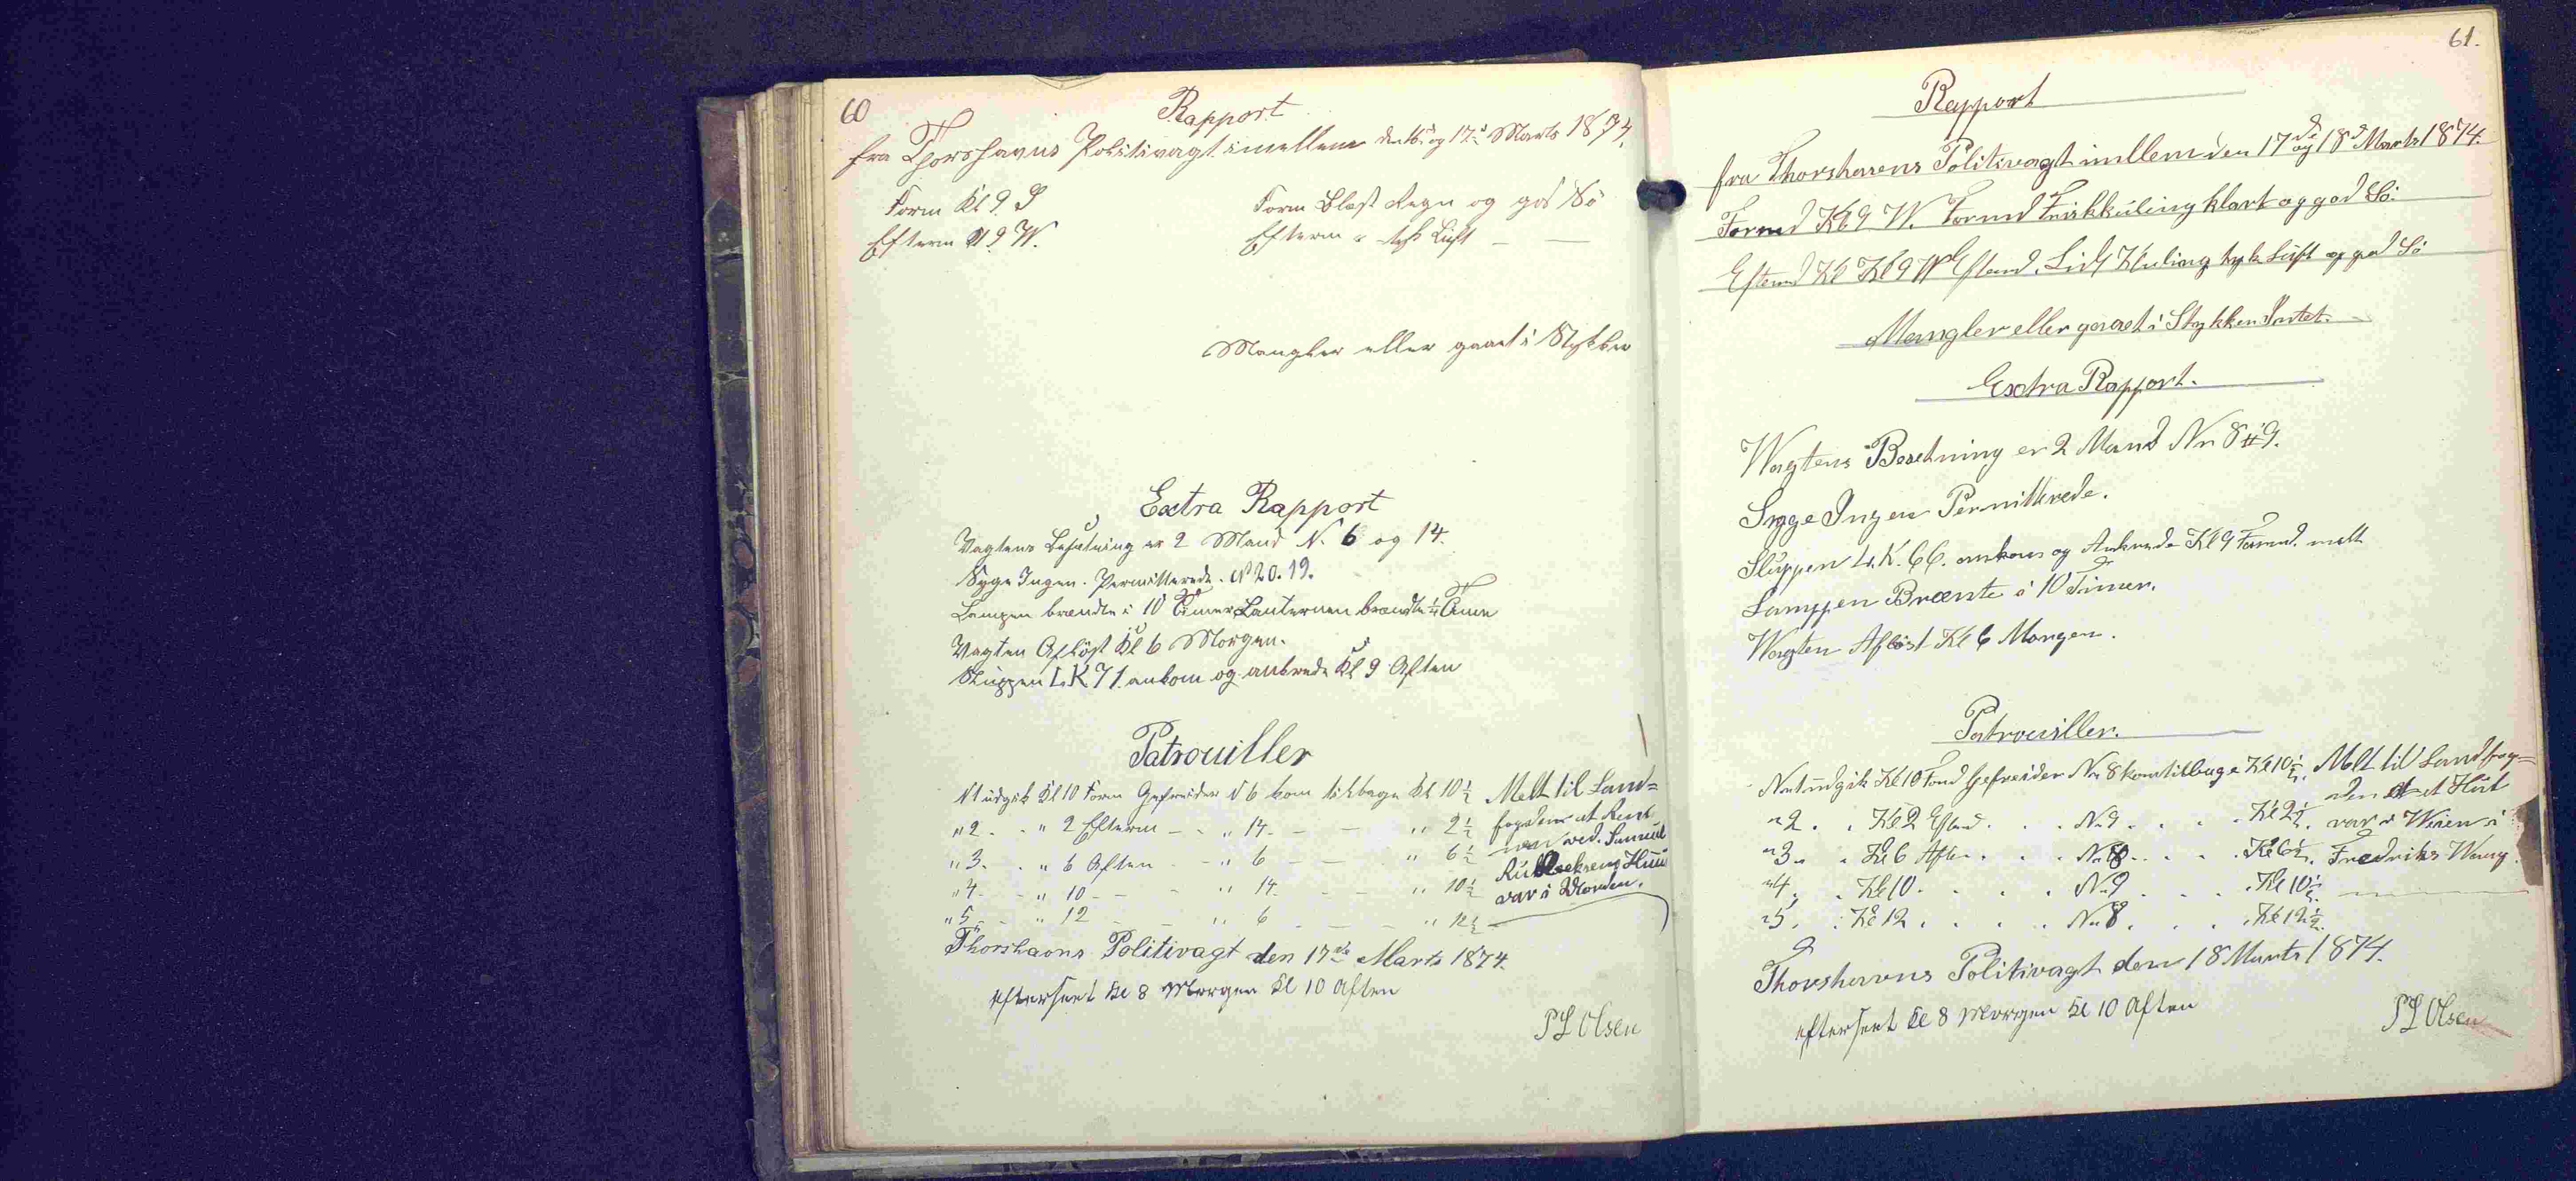 60
Rapport
fra Thorshavns Politivagt imellem den 16d og 17d Marts 1874.
Form Kl 9. S Form Blæst Regn og god Sö
Efterm Kl 9 W. Efterm " tyk Luft — —
Mangler eller gaaet i Stykker
Extra Rapport
Vagtens Besætning er 2 Mand N. 6 og 14.
Syge Ingen. Permitterede. N 20. 19.
Lampen brændte i 10 Timer Lanternen brændte Time
Vagten Aflöst Kl 6 Morgen.
Sluppen L.K 71. ankom og ankrede Kl 9 Aften
Patrouiller
N1 udgik Kl 10 Form Gefreider N 6 kom tilbage Kl 10½ Melt til Land=
"2. . " 2 Efterm — . " 14. — — " 2½ fogden at
"3. . " 6 Aften . — " 6 — — " 6½ ved
"4. . " 10 — — " 14. — — " 10½ Huus
"5. . " 12 — — " 6 — — " 12½ var i
Thorshavns Politivagt den 17de Marts 1874.
Efterseet Kl 8 Morgen Kl 10 Aften
Olsen
61.
Rapport
fra Thorshavns Politivagt imllem den 17de og 18d Marts 1874.
Formd Kl 9 W. Formd Friskkuling klart og god Sö.
Eftemd Kl Kl 9 W Eftemd. Lidt Kuling tyk Luft og god Sö
Mangler eller gaaet i Stykker Intet.
Extra Rapport.
Wagtens Besetning er 2 Mand Nr 8 #9.
Syge Ingen Permitterede.
Sluppen L.K. 66. ankom og Ankrede Kl 9 Formd. melt
Lamppen Brænte i 10 Timer.
Wagten Aflöst Kl 6 Morgen.
Patrouiller.
Nr 1 udgik Kl 10 Fomd Gefreider Nr 8 kom tilbage Kl 10½. Melt til Landfog=
den at et Hul
"2. . Kl 2 Eftmd. . . Nr 9 . . . Kl 2½. var i Weien i
"3. . Kl 6 Aften . . . Nr 8 . . . Kl 6½. Fredriks Waag.
"4. . Kl 10. . . . Nr 9 . . . Kl 10½.
"5. . Kl 12. . . . Nr 8. . . . Kl 12½.
Thorshavns Politivagt den 18 Marts 1874.
Efterseet Kl 8 Morgen Kl 10 Aften
Olsen